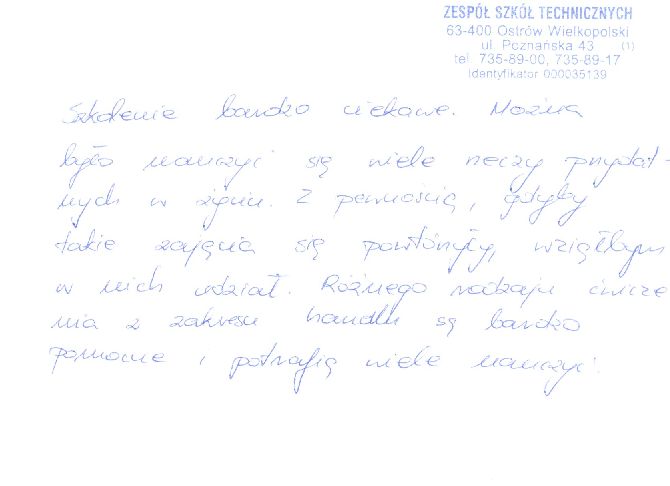 ZESPÓŁ SZKÓŁ TECHNICZNYCH
63-400 Ostrów Wielkopolski
ul. Poznańska 43 (1)
tel. 735-89-00, 735-89-17
Identyfikator 000035139
Szkolenie bardzo ciekawe. Można
było nauczyć się wiele rzeczy przydat-
nych w życiu. Z pewnością, gdyby
takie zajęcia się powtórzyły, wzięłbym
w nich udział. Różnego rodzaju ćwicze
nia z zakresu handlu są bardzo
pomocne i potrafią wiele nauczyć.